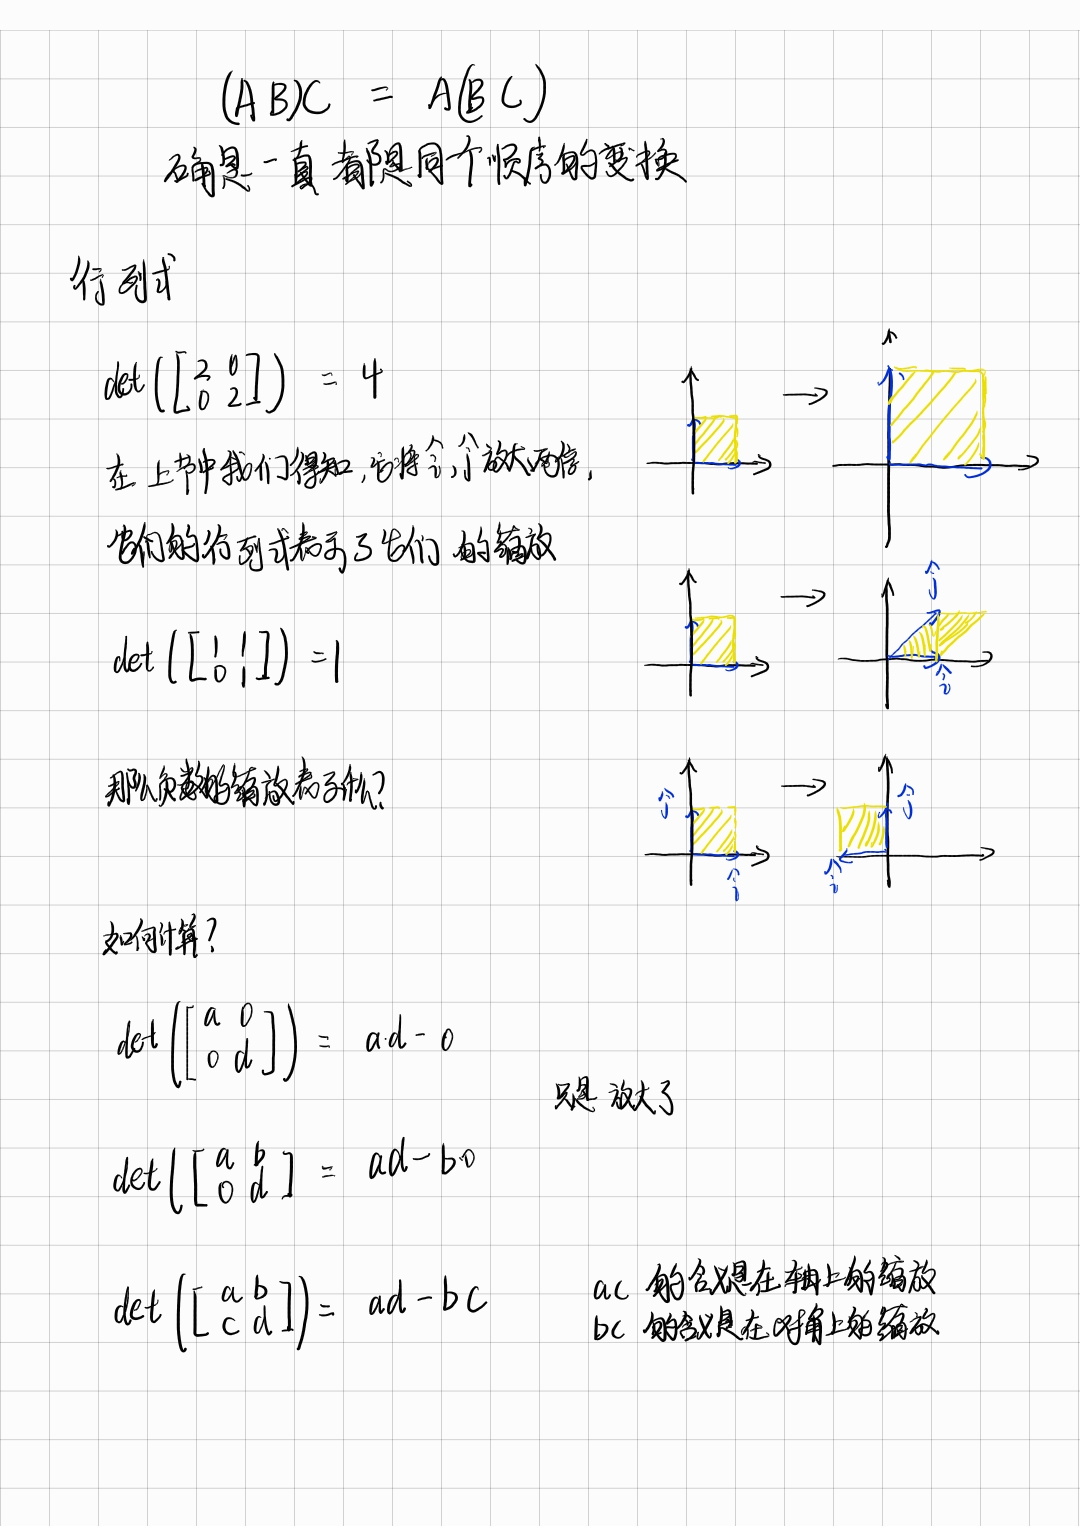 (AB)C = A(BC)
确是一真 都是同个顺序的变换
行列式
det([2 0
0 2]) = 4
在上节中我们得知,它将 î, ĵ 放大两倍,
它们的行列式表示了它们的缩放
det([1 1
0 1]) = 1
ĵ
î
那么负数的缩放表示什么?
ĵ
î
ĵ
î
如何计算?
det([a 0
0 d]) = a·d - 0
只是放大了
det([a b
0 d] = ad - b·0
det([a b
c d]) = ad - bc
ac 的含义是在轴上的缩放
bc 的含义是在对角上的缩放